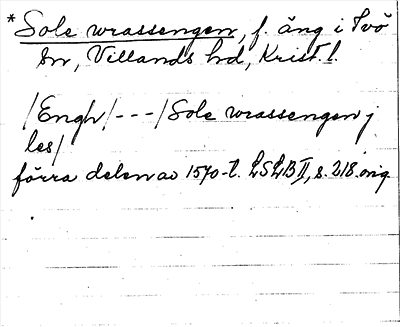 * Sole wrassengen, f. äng i Ivö
sn, Villands hd, Krist. l.
/Engh/ - - - / Sole wrassengen j
les/
förra delen av 1570-t. LSLB II, s. 218. orig